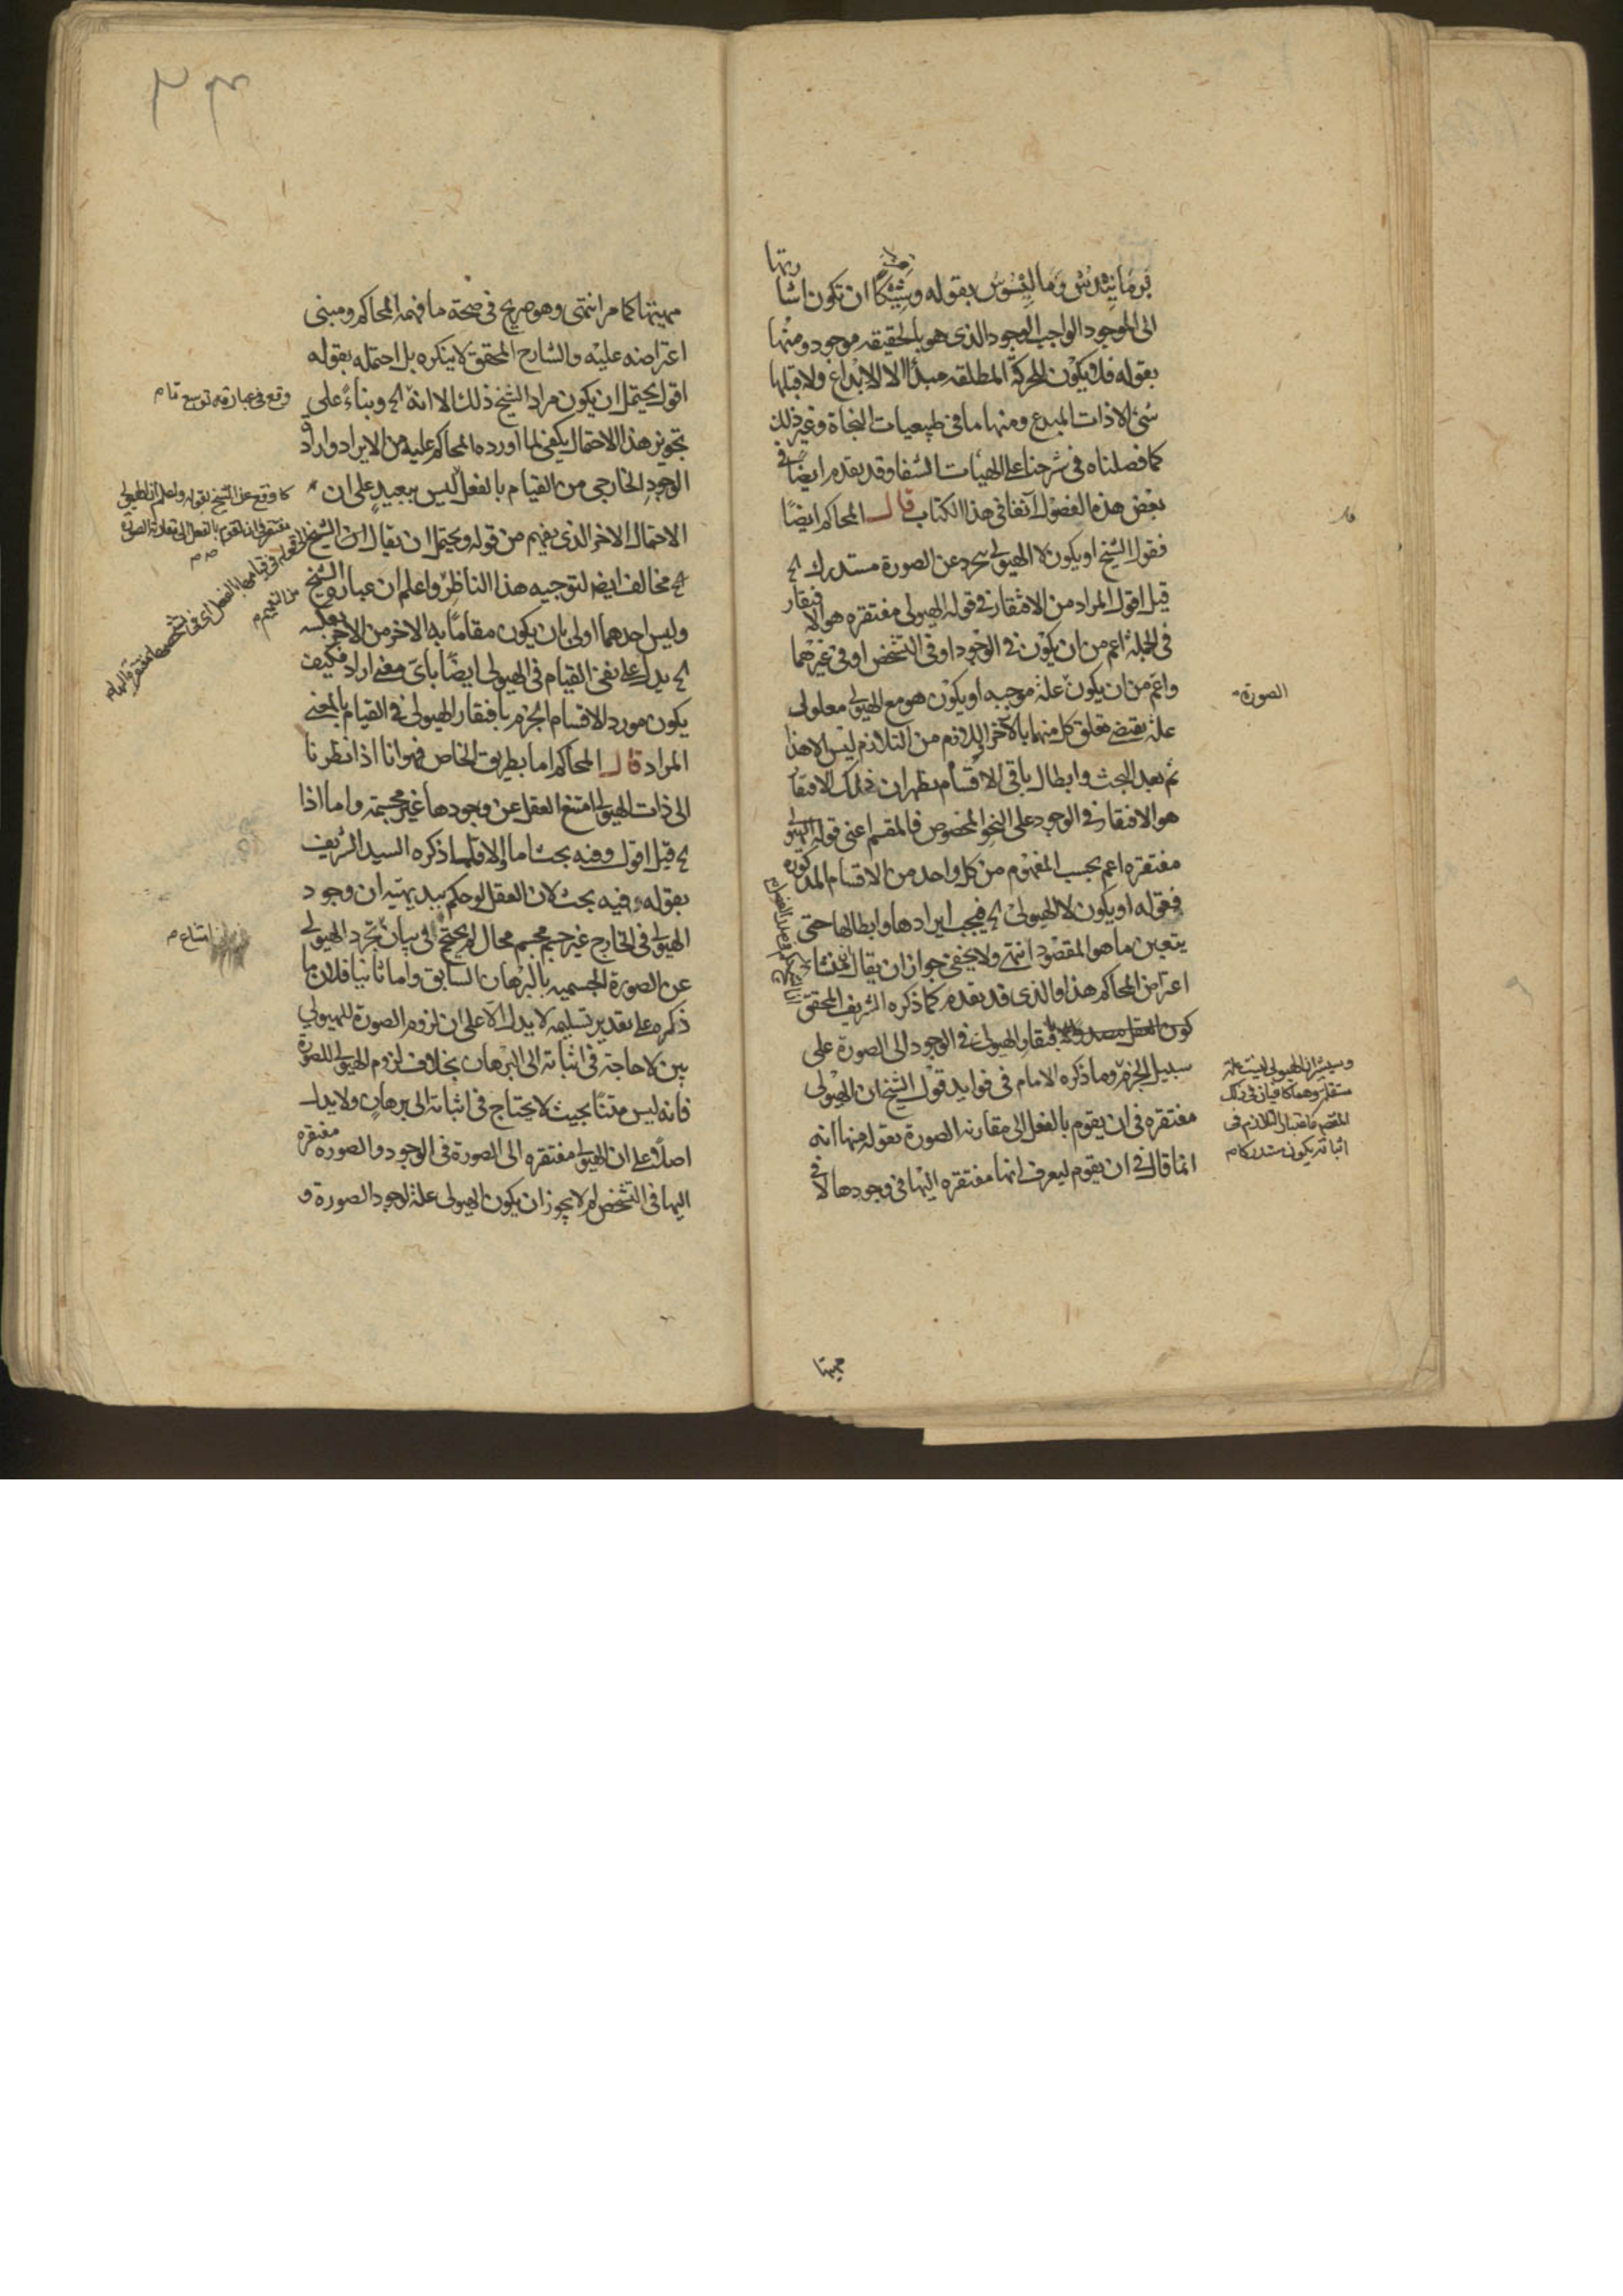 برمانيدس وماليسوس بقوله وشيكا ان تكون اشارتها
الى الموجود الواجب الوجود الذى هو بالحقيقه موجود ومنها
بقوله فلا يكون للحركة المطلقه مبدأ الا الابداع ولا قبلها
شئ الا ذات المبدع ومنها ما فى طبيعيات النجاة وغير ذلك
كما فصلناه فى شرحنا على الهيات الشفا وقد يقدم ايضا فى
بعض هذه الفصول آنفا فى هذا الكتاب قال المحاكم ايضًا
فقول الشيخ او يكون لا الهيولى يتجرد عن الصورة مستدرك الخ
قيل اقول المراد من الافتقار فى قوله الهيولى مفتقره هو الافتقار
فى الجملة اعم من ان يكون فى الوجود او فى التشخص او فى غيرهما
واعم من ان يكون علة موجبه او يكون هو مع الهيولى معلولى
علة يقتضى تعلق كل منهما بالآخر اذ اللازم من التلازم ليس الا هذا
ثم بعد البحث وابطال باقى الاقسام يظهر ان ذلك الافتقار
هو الافتقار فى الوجود على النحو المخصوص فالمقسم اعنى قوله الهيولى
مفتقره اعم بحسب المفهوم من كل واحد من الاقسام المذكوره
فقوله او يكون لا الهيولى الخ فيجب ايرادها وابطالها حتى
يتعين ما هو المقصود انتهى ولا يخفى جواز ان يقال ان منشاء
اعتراض المحاكم هذا والذى قد يقدم كما ذكره الشريف المحقق
كون افتقار الهيولى فى الوجود الى الصورة على
سبيل الجزم وما ذكره الامام فى فوايد قول الشيخ ان الهيولى
مفتقره فى ان يقوم بالفعل الى مقارنه الصورة بقوله منها انه
انما قال فى ان يقوم ليعرف انها مفتقره اليها فى وجودها لا فى
مهيتها
الصورة
وسيشير ان الهيولى ليست علة
اثباته يكون مستدركا م
مهيتها كما مر انتهى وهو صريح فى صحة ما فهمه المحاكم ومبنى
اعتراضه عليه والشارح المحقق لا ينكره بل احتمله بقوله
اقول يحتمل ان يكون مراد الشيخ ذلك الا انه الخ وبناءً على
تجويز هذا الاحتمال يكفى لما اورده المحاكم عليه من الايراد واراد
الوجود الخارجى من القيام بالفعل ليس ببعيد على ان
الاحتمال الاخر الذى يفهم من قوله ويحتمل ان يقال ان الشيخ
الخ مخالف ايضا لتوجيه هذا الناظر واعلم ان عبارة الشيخ
وليس احدهما اولى بان يكون مقامًا به الاخر من الاخر بعكسه
الخ يدل على نفى القيام فى الهيولى ايضًا باى معنى اراد فكيف
يكون مورد الاقسام الجزم بافتقار الهيولى فى القيام بالمعنى
المراد قال المحاكم اما بطريق الخاص فهو انا اذا نظرنا
الى ذات الهيولى امتنع العقل عن وجودها غير مجسمة واما اذا
الخ قيل اقول وفيه بحث اما اولا فلما ذكره السيد الشريف
بقوله وفيه بحث لان العقل لو حكم ببديهيته ان وجود
الهيولى فى الخارج غير جسم مجسم محال لم يحتج فى بيان تجرد الهيولى
عن الصورة الجسميه بالبرهان السابق واما ثانيا فلان ما
ذكره على تقدير تسليمه لا يدل الا على ان لزوم الصورة للهيولى
بين لا حاجة فى اثباته الى البرهان بخلاف لزوم الهيولى للصورة
فانه ليس متنا بحيث لا يحتاج فى اثباته الى برهان ولا يدل
اصلًا على ان الهيولى مفتقره الى الصورة فى الوجود والصوره مفتقره
اليها فى التشخص لم لا يجوز ان يكون الهيولى علة لوجود الصورة و
وقع فى عبارته توسع تام
كما وقع عن الشيخ بقوله واعلم ان الهيولى
مفتقرة فى ان تقوم بالفعل الى مقارنة الصورة
من التعميم م
امتناع م